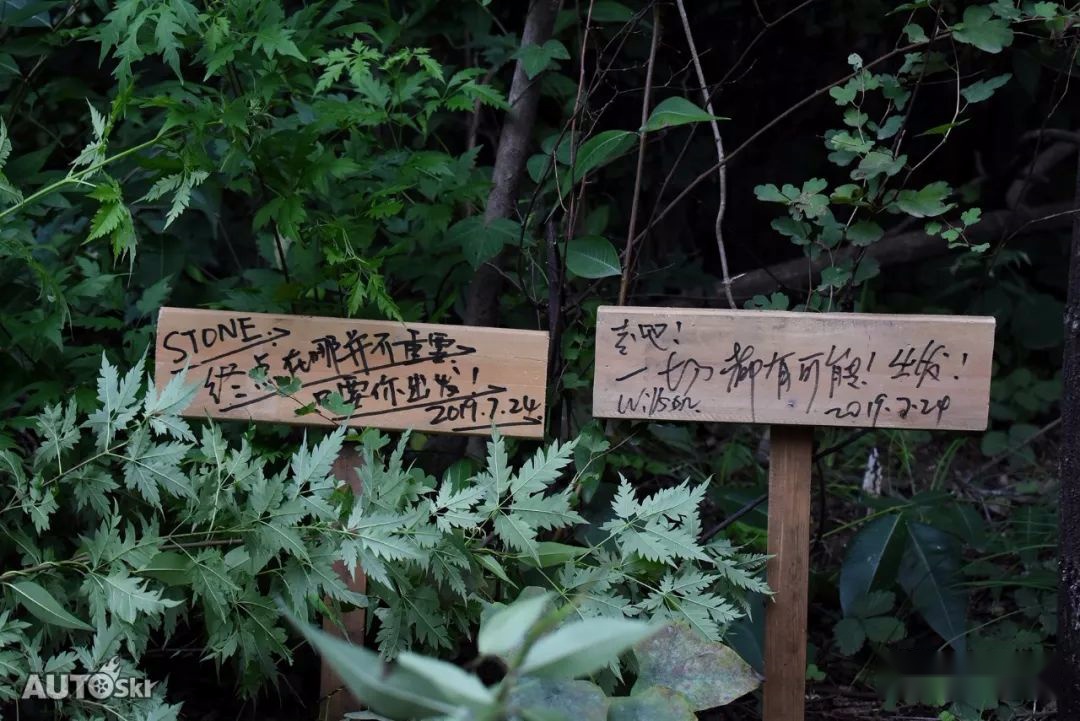 STONE.
终点在哪并不重要
只要你出发！
2019.7.24
去吧！
一切都有可能！出发！
Wilson.
2019.7.24
AUTOskr